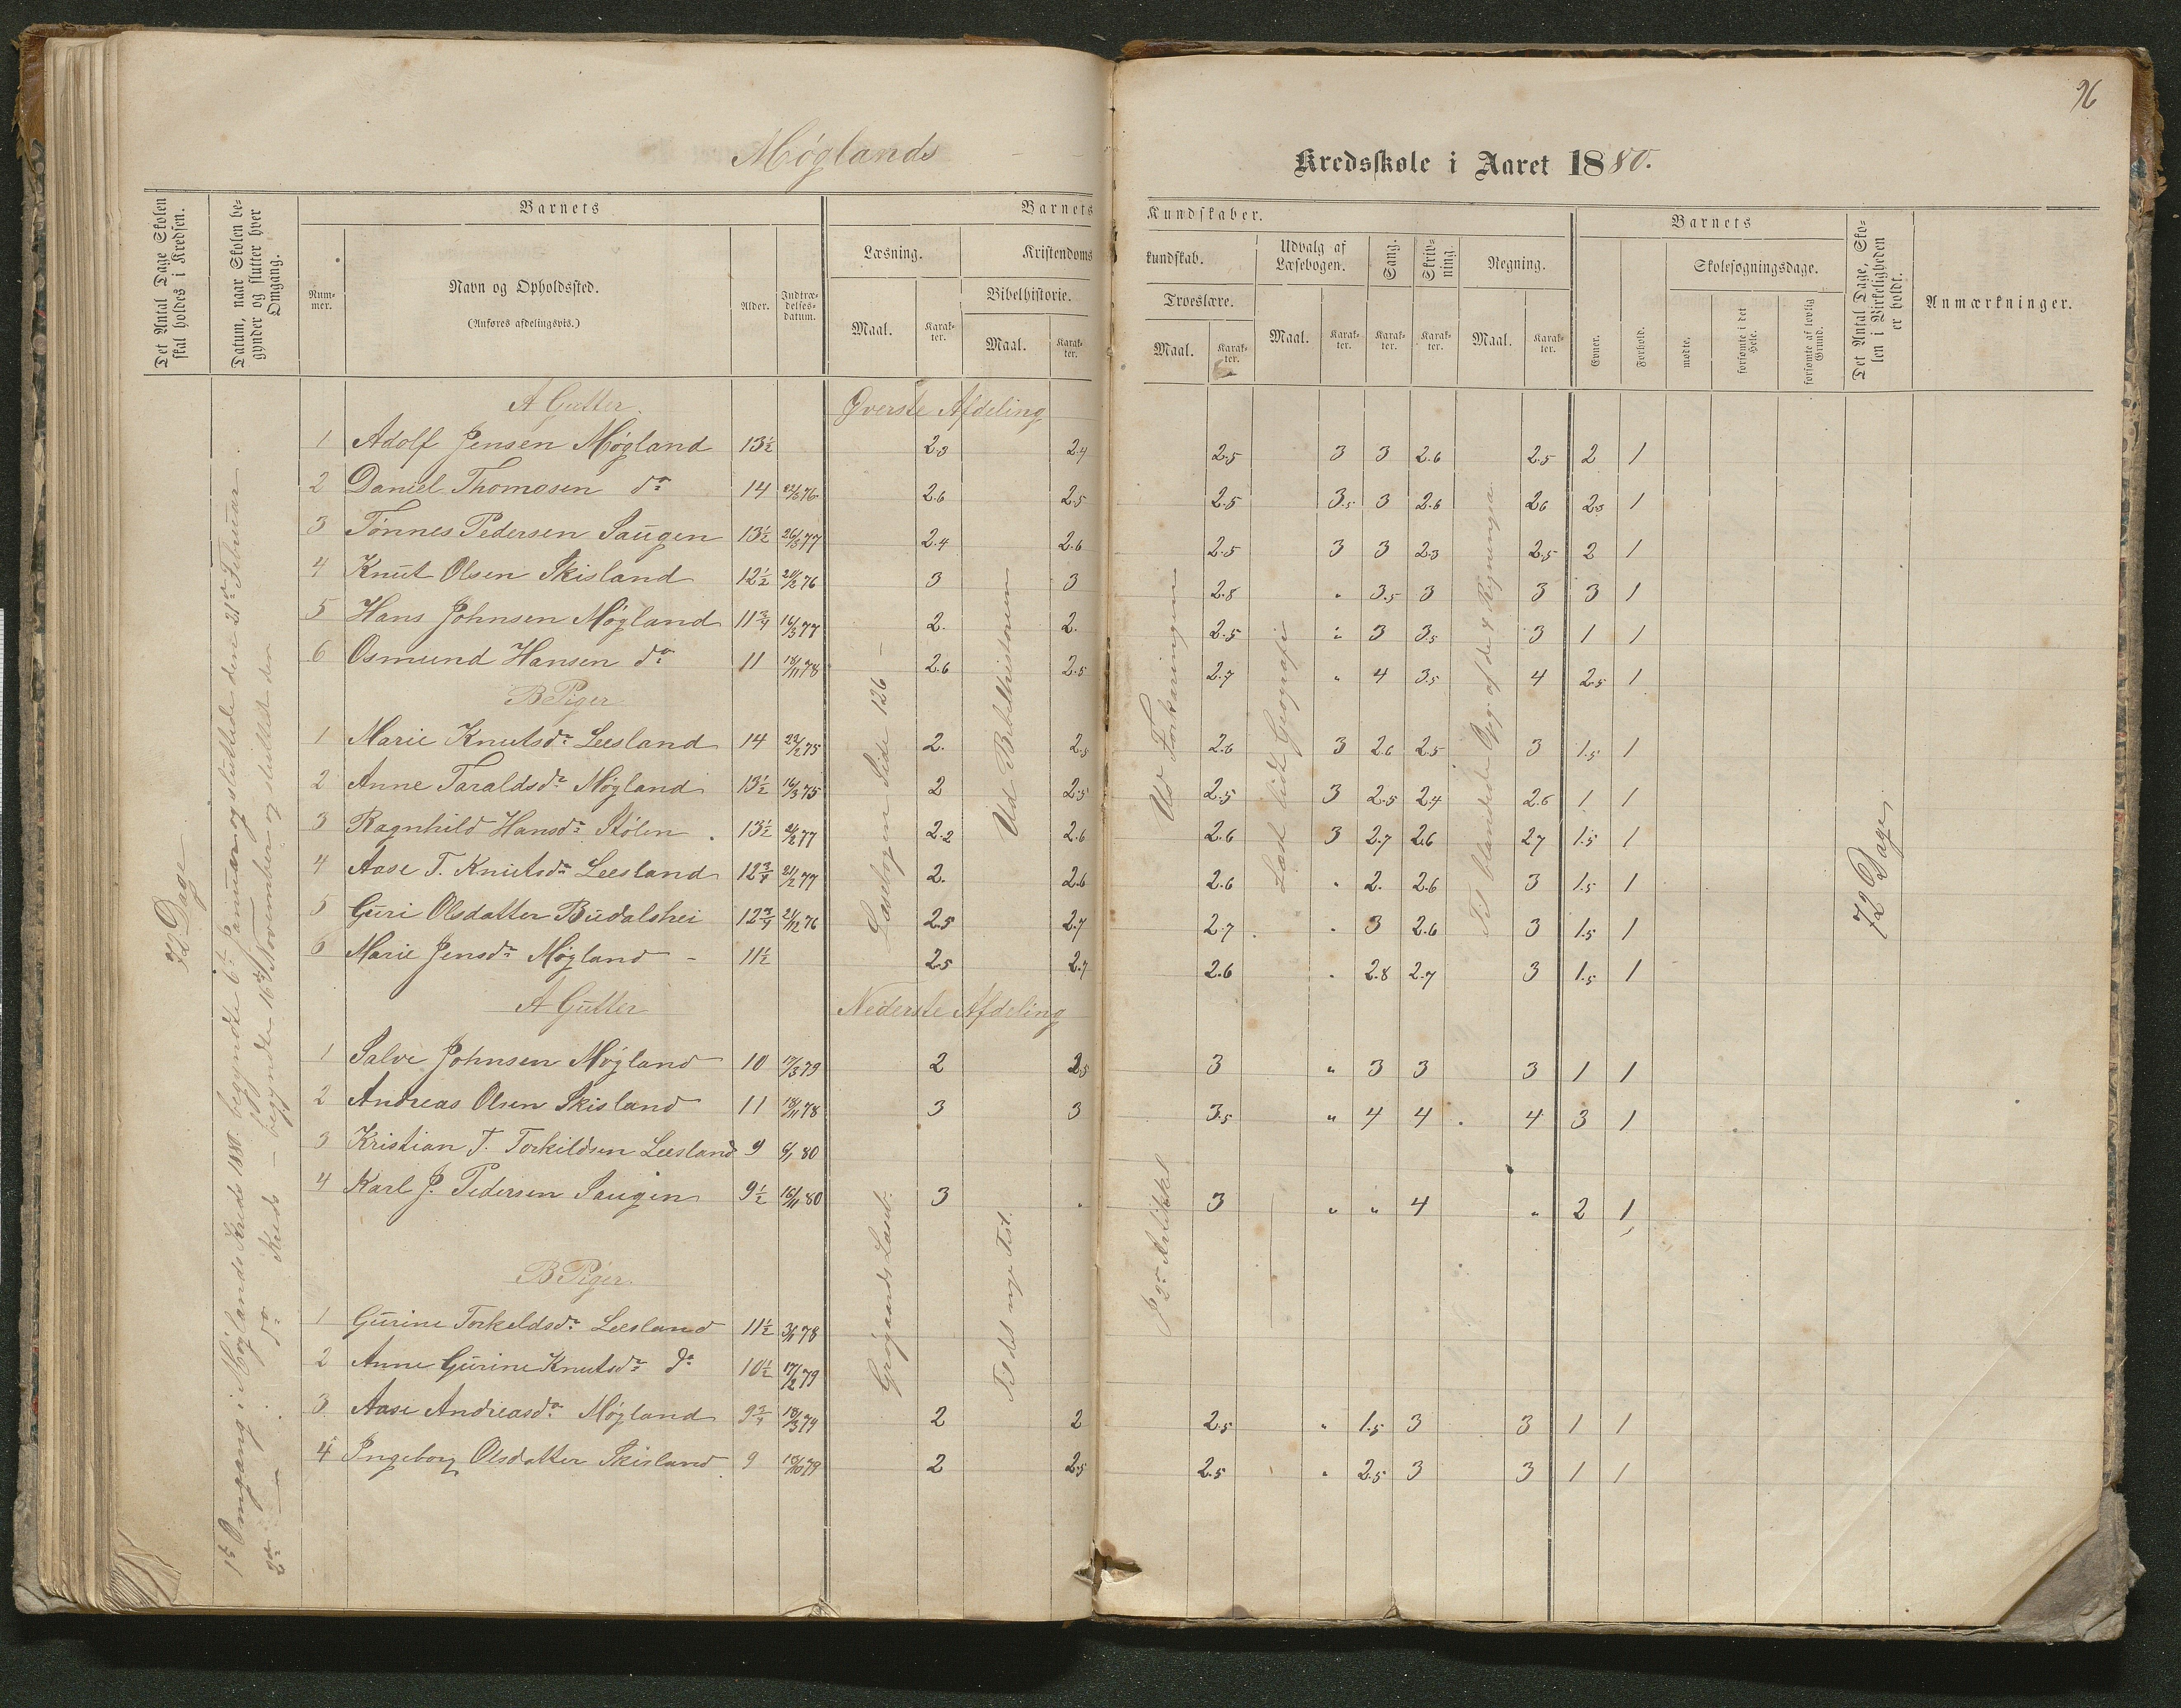 96
Møglands
Kredsskole i Aaret 1880.
Det Antal Dage Skolen skal holdes i Kredsen.
Datum, naar Skolen begynder og slutter hver Omgang.
Barnets
Nummer.
Navn og Opholdssted.
(Anføres afdelingsvis.)
Alder.
Indtrædelsesdatum.
Barnets Kundskaber.
Læsning.
Maal.
Karakter.
Kristendomskundskab.
Bibelhistorie.
Maal.
Karakter.
Troeslære.
Maal.
Karakter.
Udvalg af Læsebogen.
Maal.
Karakter.
Sang.
Karakter.
Skrivning.
Karakter.
Regning.
Maal.
Karakter.
Barnets
Evner.
Forhold.
Skolesøgningsdage.
mødte.
forsømte i det Hele.
forsømte af lovlig Grund.
Det Antal Dage, Skolen i Virkeligheden er holdt.
Anmærkninger.
72 Dage
1ste Omgang i Møglands Kreds 1880 begyndte 6te Januar og sluttede den 21de Februar.
2den — do Kreds — begyndte 16de November og sluttede den
A Gutter. Øverste Afdeling
1 Adolf Jensen Møgland 13½ 2.3 2.4 2.5 3 3 2.6 2.5 2 1
2 Daniel Thomasen do 14 76 2.6 2.5 2.5 3.5 3 2.6 2.6 2.3 1
3 Tønnes Pedersen Saugen 13½ 26/3 77 2.4 2.6 2.5 3 3 2.3 2.5 2 1
4 Knut Olsen Skisland 12½ 76 3 3 2.8 " 3.5 3 3 3 1
5 Hans Johnsen Møgland 11¾ 16/3 77 2. 2. 2.5 " 3 3.5 3 1 1
6 Osmund Hansen do 11 18/11 78 2.6 2.5 2.7 " 4 3.5 4 2.5 1
B Piger
1 Marie Knutsdr Leesland 14 22/2 75 2. 2.5 2.6 3 2.6 2.5 3 1.5 1
2 Anne Taraldsdr Møgland 13½ 16/3 75 2 2.5 2.5 3 2.5 2.4 2.6 1 1
3 Ragnhild Hansdr Stølen 13½ 77 2.2 2.6 2.6 3 2.7 2.6 2.7 1.5 1
4 Aase T. Knutsdr Leesland 12¾ 21/2 77 2. 2.6 2.6 " 2. 2.6 3 1.5 1
5 Guri Olsdatter Budalshei 12¾ 21/12 76 2.5 2.7 2.7 " 3 2.6 3 1.5 1
6 Marie Jensdr Møgland - 11½ 2.5 2.7 2.6 " 2.8 2.7 3 1.5 1
Læsebogen Side 126 -
Ud Bibelhistorien
Ud Forklaringen
Læst lidt Geografi
Til blandede Opg. af de 4 Regningsa.
72 Dage
A Gutter Nederste Afdeling
1 Salve Johnsen Møgland 10 17/3 79 2 2.5 3 " 3 3 3 1 1
2 Andreas Olsen Skisland 11 18/11 78 3 3 3.5 " 4 4 4 3 1
3 Kristian T. Torkildsen Leesland 9 6/1 80
4 Karl J. Pedersen Saugen 9½ 16/11 80 3 " 3 " " 4 " 2 1
B Piger.
1 Gurine Torkeldsdr Leesland 11½ 78
2 Anne Gurine Knutsdr do 10½ 17/2 79
3 Aase Andreasdr Møgland 9¾ 18/3 79 2 2 2.5 " 1.5 3 3 1 1
4 Ingeborg Olsdatter Skisland 9 79 2 2.5 2.5 " 2.5 3 3 1 1
Grøgaards Læseb.
Til det nye Test.
I 2den Artikkel